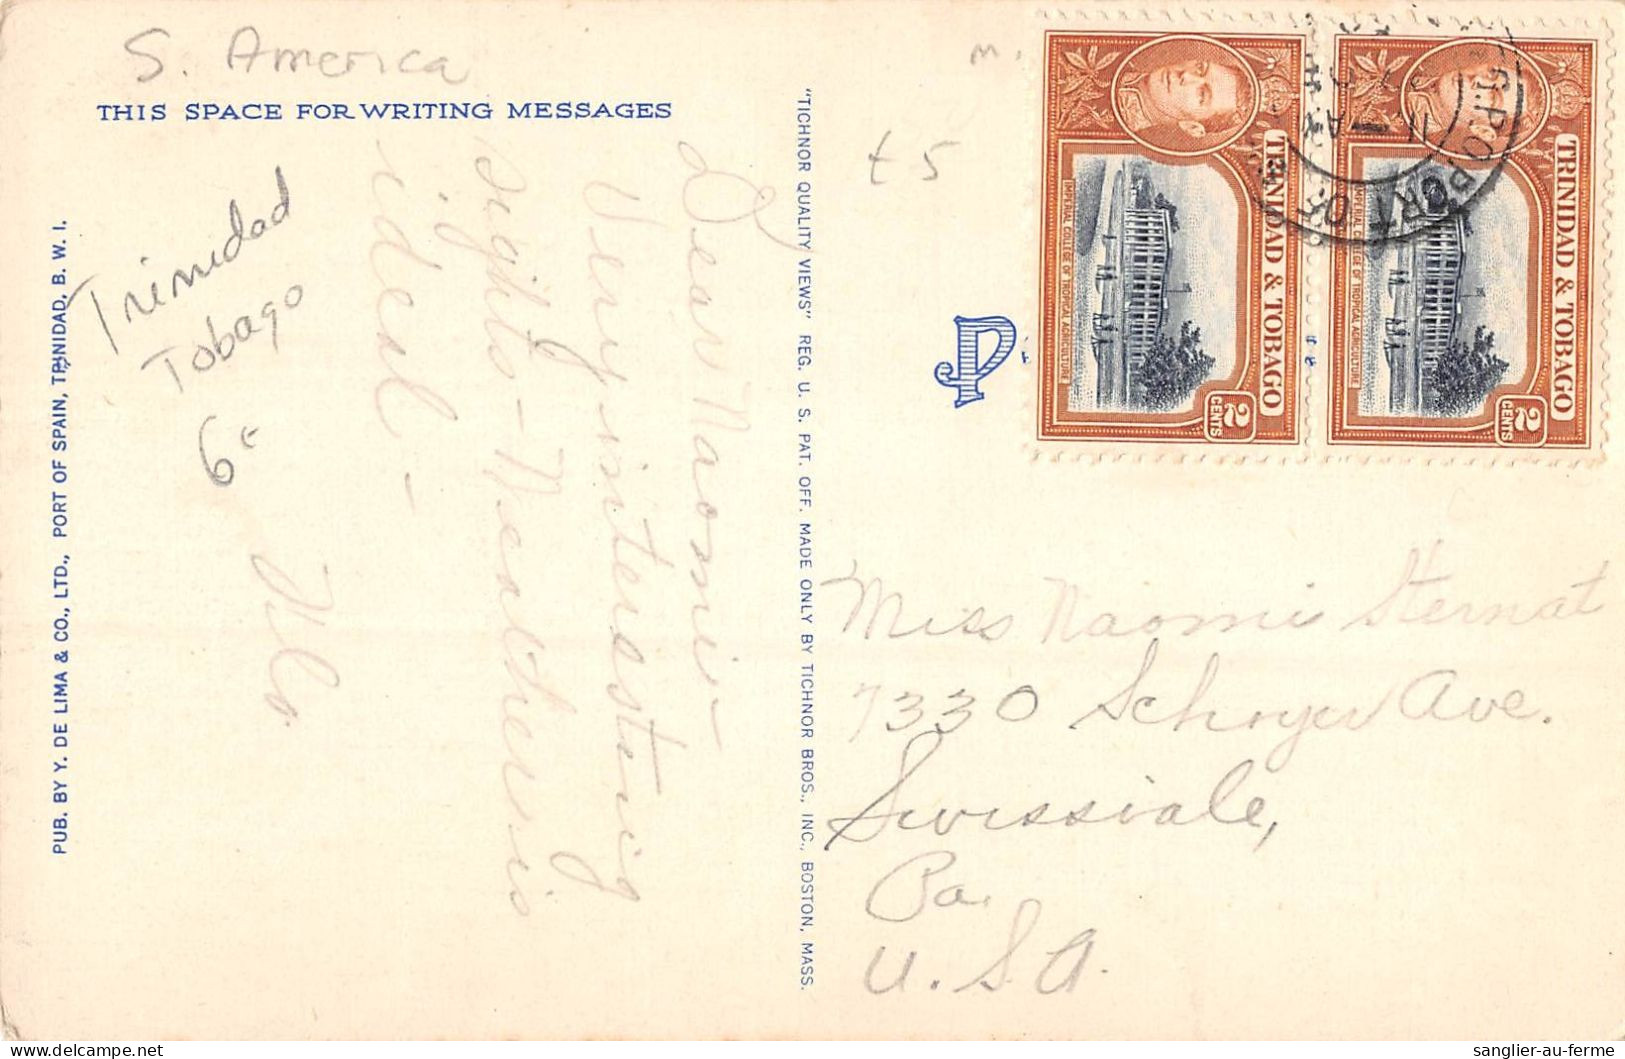 S. America
THIS SPACE FOR WRITING MESSAGES
Trinidad
Tobago
6c
Dear Naomi -
Very interesting
sights - Weather is
ideal -
PUB. BY Y. DE LIMA & CO., LTD., PORT OF SPAIN, TRINIDAD, B. W. I.
"TICHNOR QUALITY VIEWS" REG. U. S. PAT. OFF. MADE ONLY BY TICHNOR BROS., INC., BOSTON, MASS.
m.
P
TRINIDAD & TOBAGO
IMPERIAL COLLEGE OF TROPICAL AGRICULTURE
2 CENTS
TRINIDAD & TOBAGO
IMPERIAL COLLEGE OF TROPICAL AGRICULTURE
2 CENTS
G.P.O. PORT OF
Miss Naomi Sternat
7330 Schoyer Ave.
Swissvale,
Pa.
U.S.A.
sanglier-au-ferme